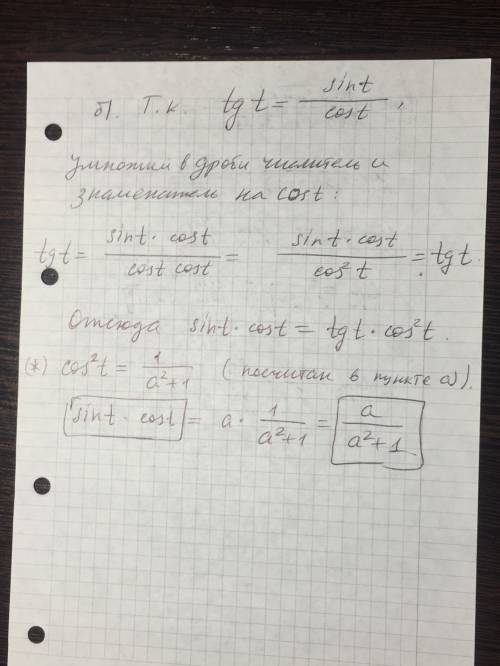 б). Т.к. tg t = sint / cost,
Умножим в дроби числитель и
знаменатель на cost:
tg t = sint · cost / cost cost = sint · cost / cos² t = tg t.
Отсюда sint · cost = tg t · cos² t.
(*) cos² t = 1 / a²+1 (посчитан в пункте а)).
sint · cost = a · 1 / a²+1 = a / a²+1